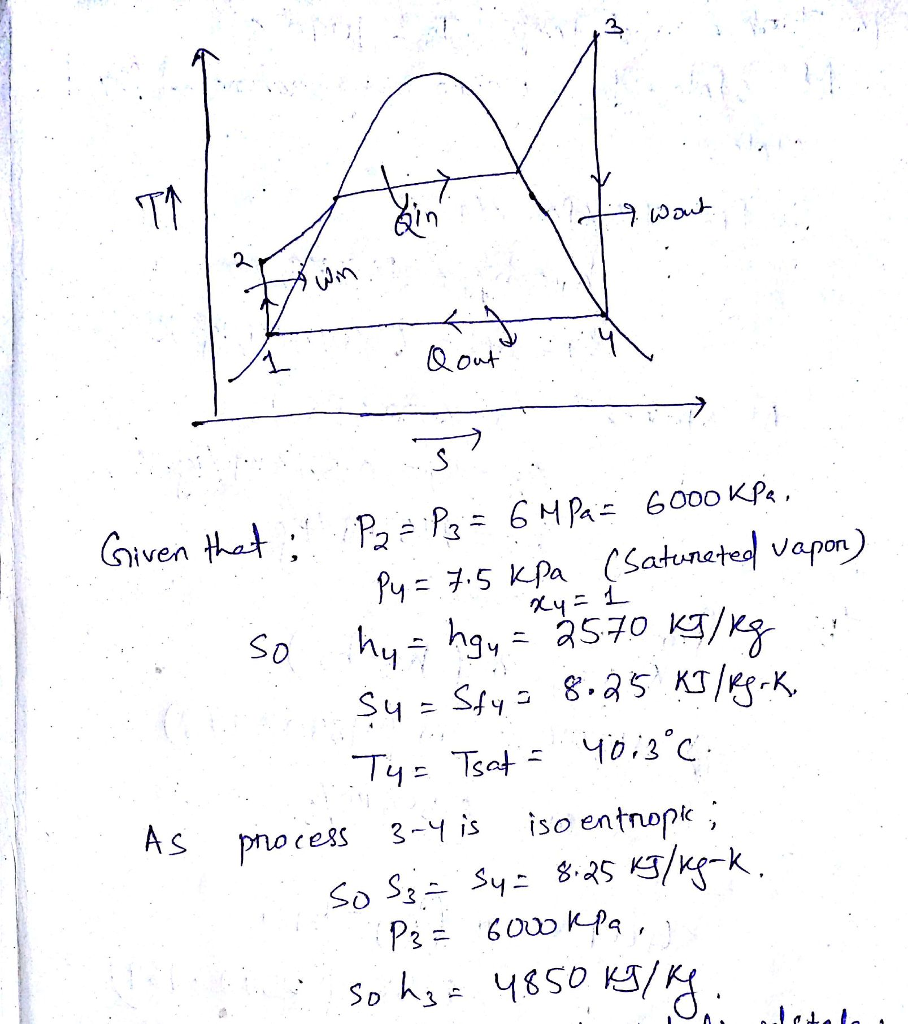 3
T↑
Qin
Wout
2
Win
1
Qout
4
S
Given that ; P2 = P3 = 6 MPa = 6000 KPa.
P4 = 7.5 KPa (Saturated vapor)
x4 = 1
So h4 = hg4 = 2570 KJ/Kg
S4 = Sf4 = 8.25 KJ/Kg-K.
T4 = Tsat = 40.3°C.
As process 3-4 is isoentropic ;
So S3 = S4 = 8.25 KJ/Kg-K.
P3 = 6000 KPa,
So h3 = 4850 KJ/Kg.